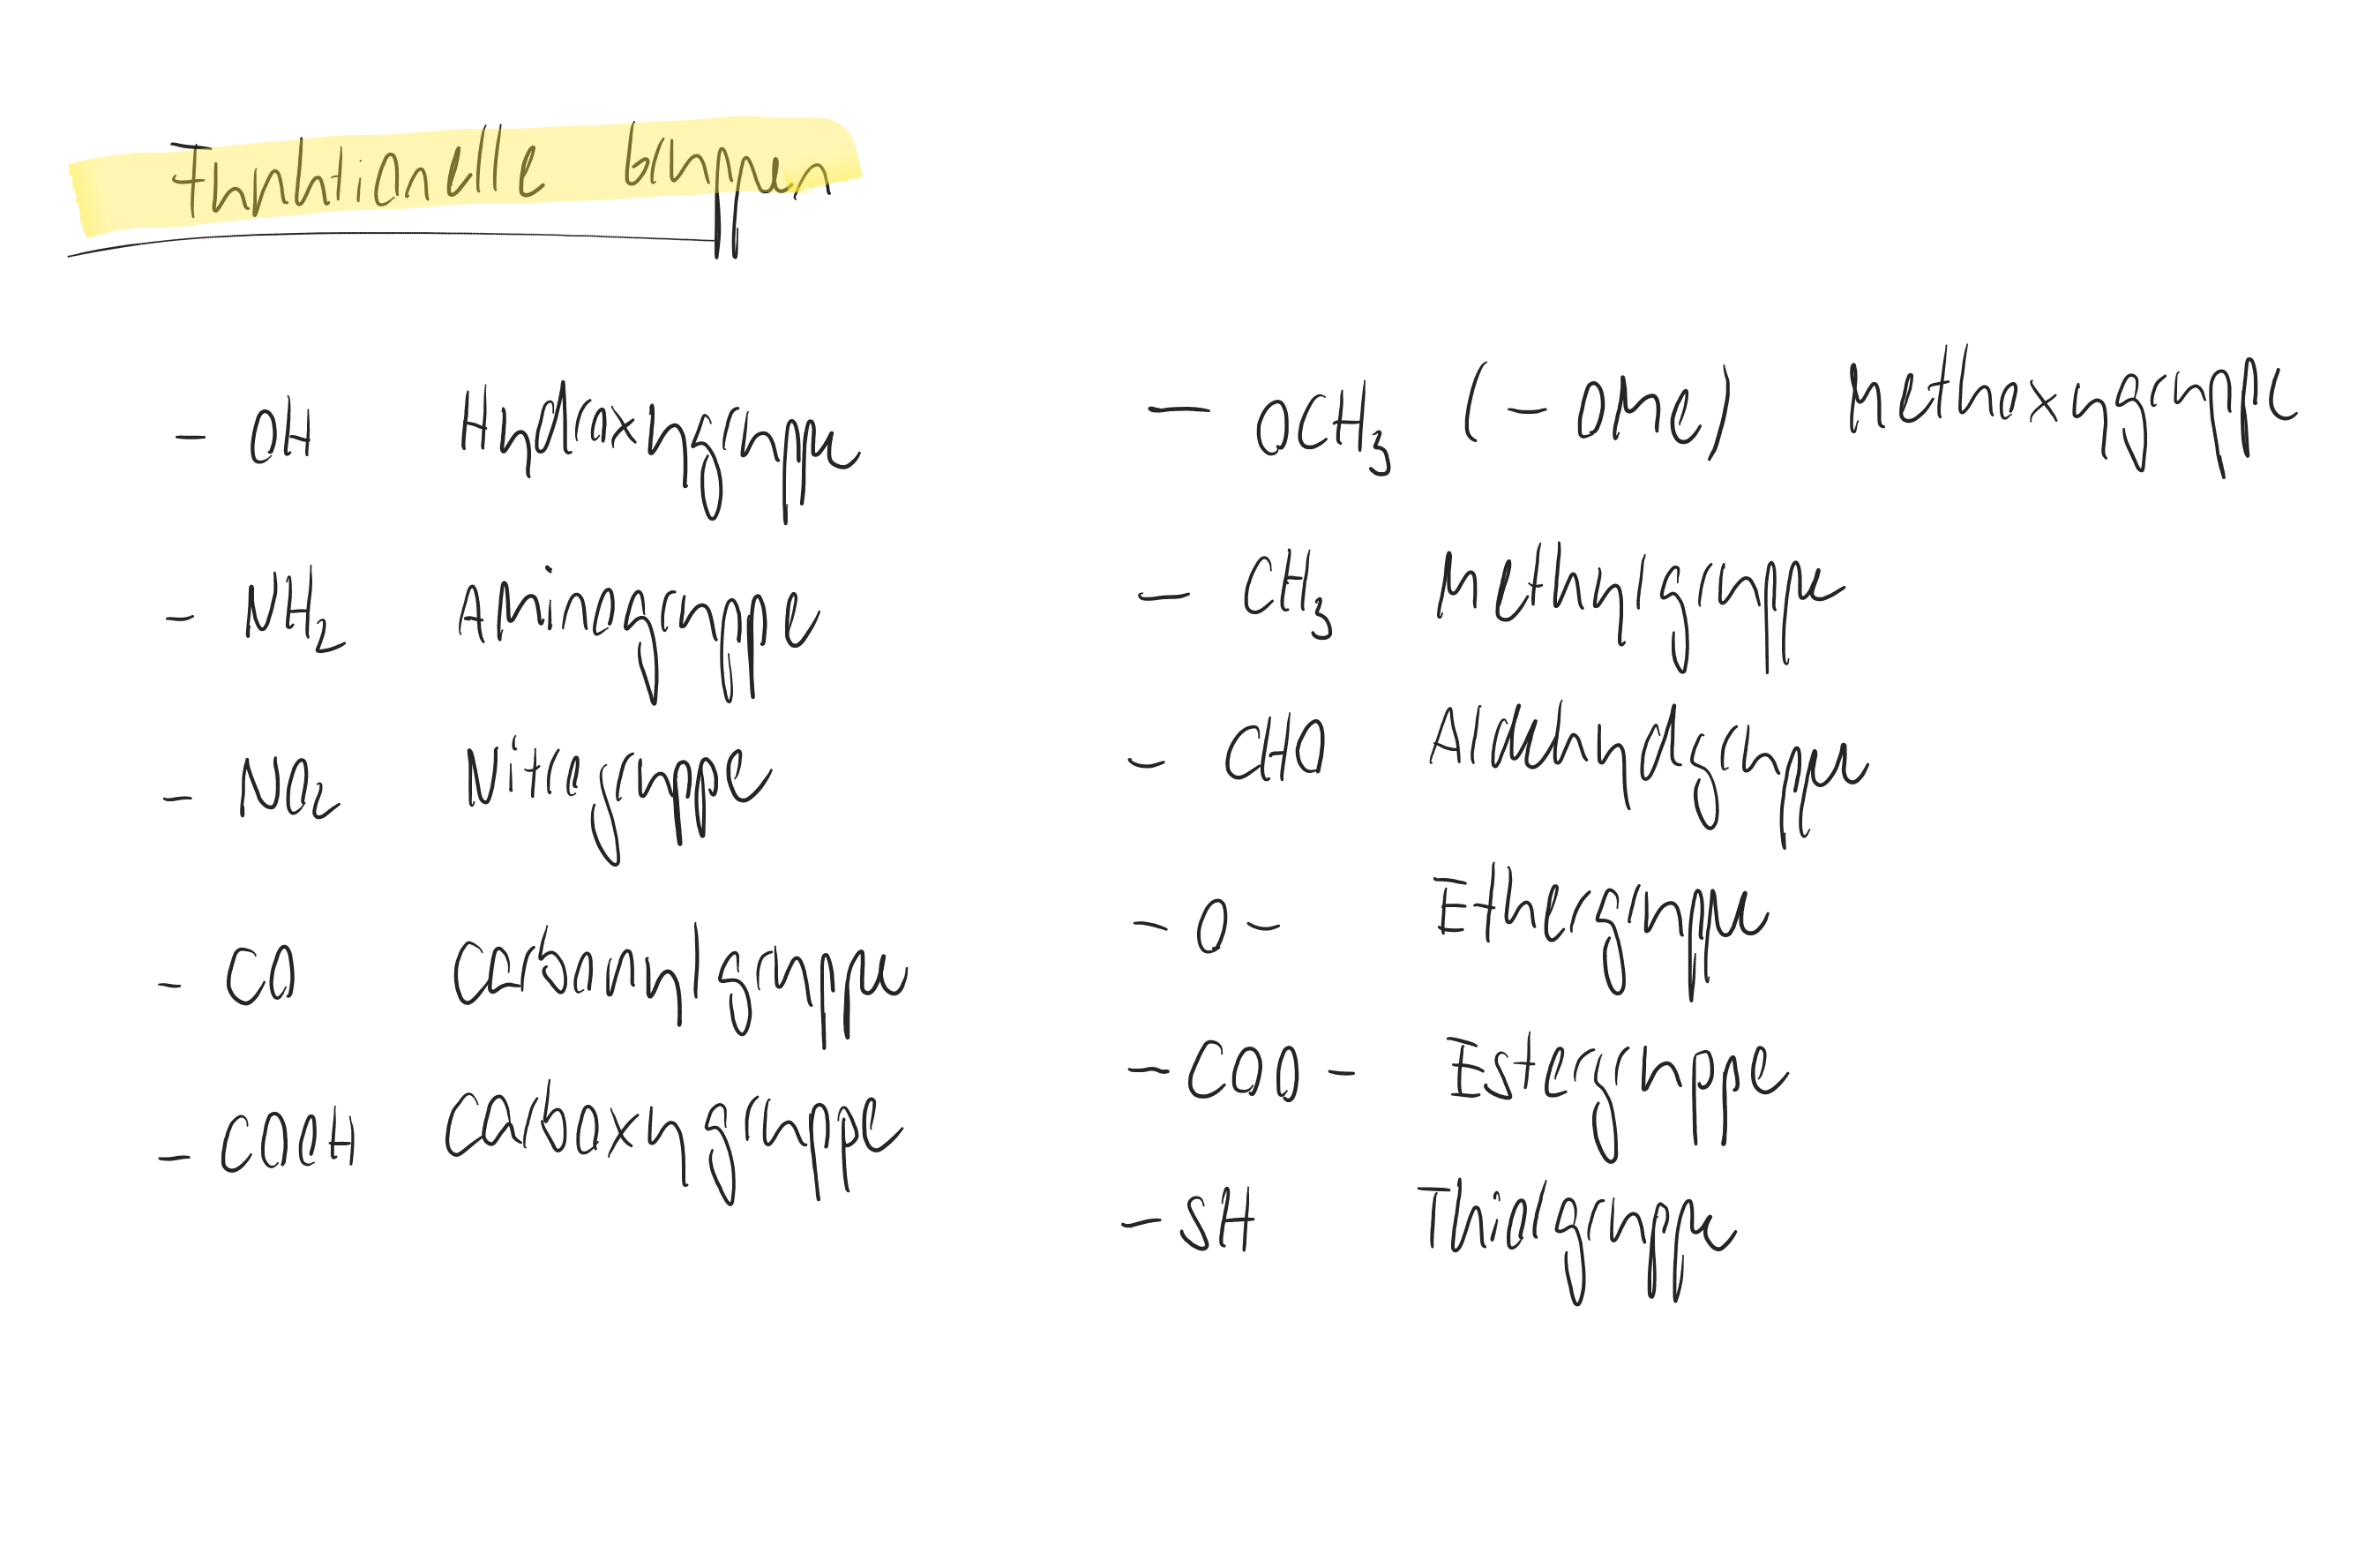 Funktionelle Gruppen
- OH Hydroxygruppe
- NH₂ Aminogruppe
- NO₂ Nitrogruppe
- CO Carbonylgruppe
- COOH Carboxygruppe
- OCH₃ (- OMe) Methoxygruppe
- CH₃ Methylgruppe
- CHO Aldehydgruppe
- O - Ethergruppe
- COO - Estergruppe
- SH Thiolgruppe